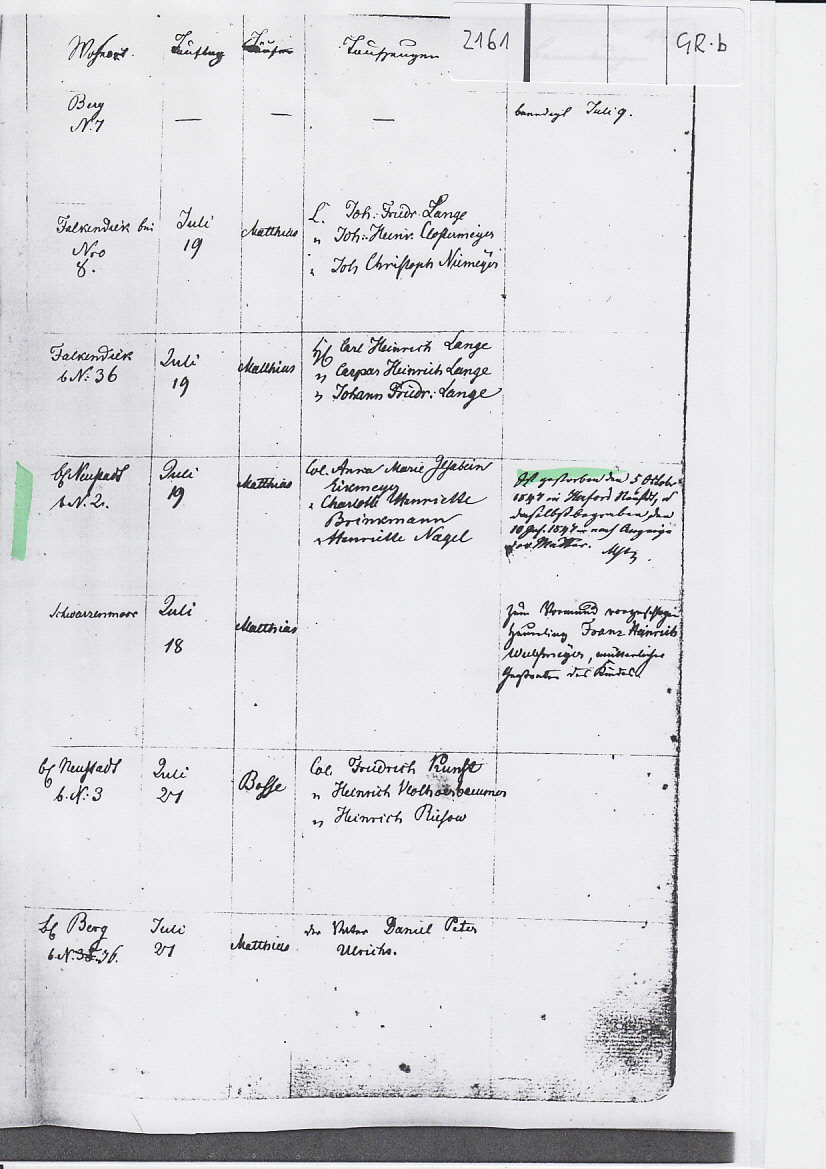 2161
GR.b
Wohnort. Tauftag Täufer Taufzeugen
Berg
N. 7
— — —
beerdigt Juli 9.
Falkendiek bei
Nro
8.
Juli
19
Matthias
Joh: Friedr. Lange
" Joh: Heinr. Clostermeyer
" Joh Christoph Niemeyer
Falkendiek
b N: 36
Juli
19
Matthias
Carl Heinrich Lange
" Caspar Heinrich Lange
" Johann Friedr: Lange
Neustadt
b. N. 2.
Juli
19
Matthias
Col. Anna Marie Ilsabein
Eixmeyer
" Charlotte Henriette
Brinkmann
" Henriette Nagel
Ist gestorben den 5 Octobr
1847 in Herford Neust,
daselbst begraben den
10 1847 nach Anzeige
der Mutter.
Schwarzenmoor
Juli
18
Matthias
Zum Vormund vorgeschlagen
Heuerling Franz Heinrich
mütterlicher
Großvater des Kindes.
Neustadt
b. N: 3
Juli
21
Bosse
Col. Friedrich Kunst
" Heinrich
" Heinrich
Berg
b. N. 36.
Juli
21
Matthias
der Vater Daniel Peter
Ulrichs.